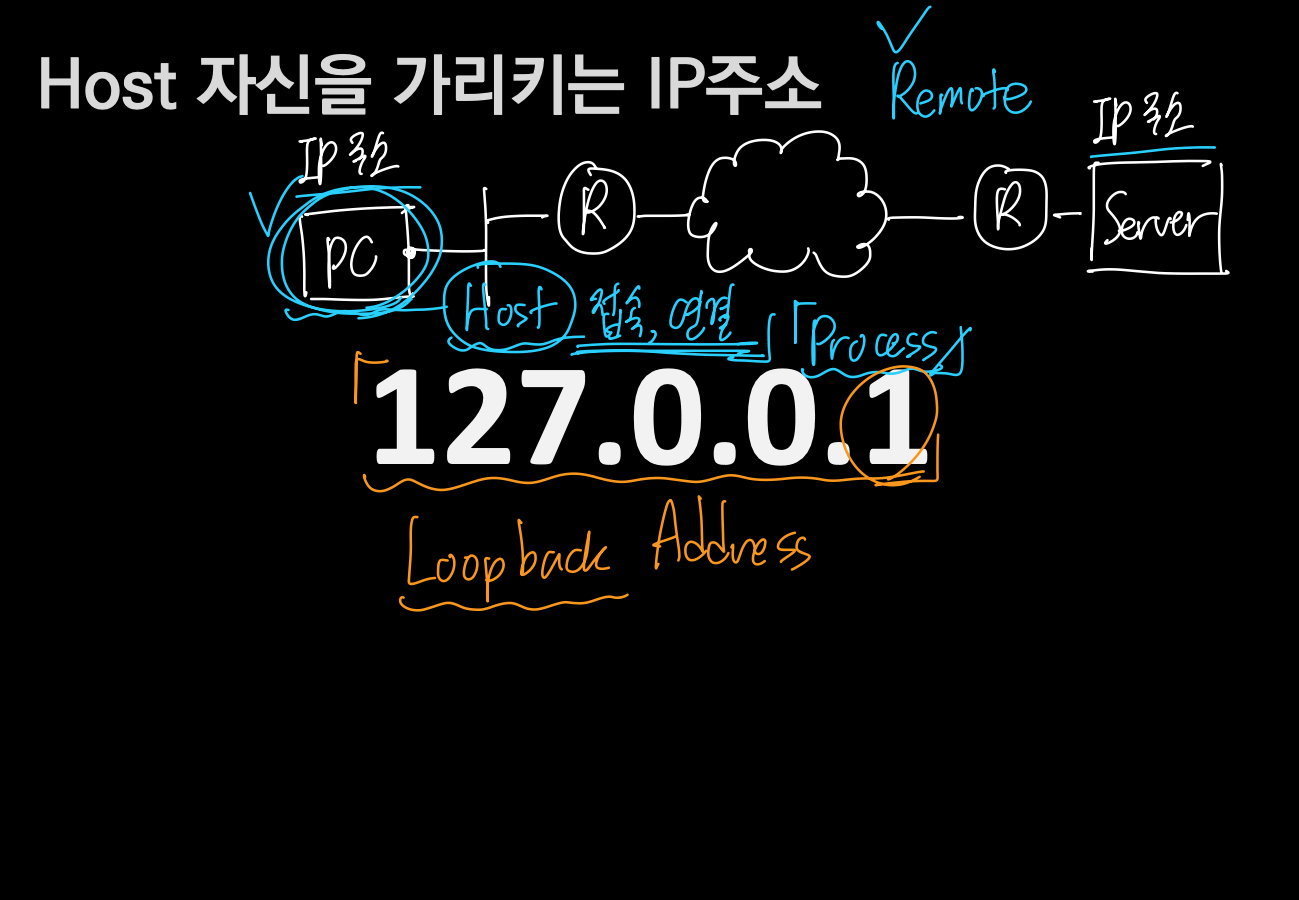 Host 자신을 가리키는 IP주소
Remote
IP 주소
IP 주소
PC
R
R
Server
Host 접속, 연결 「Process」
127.0.0.1
Loopback Address